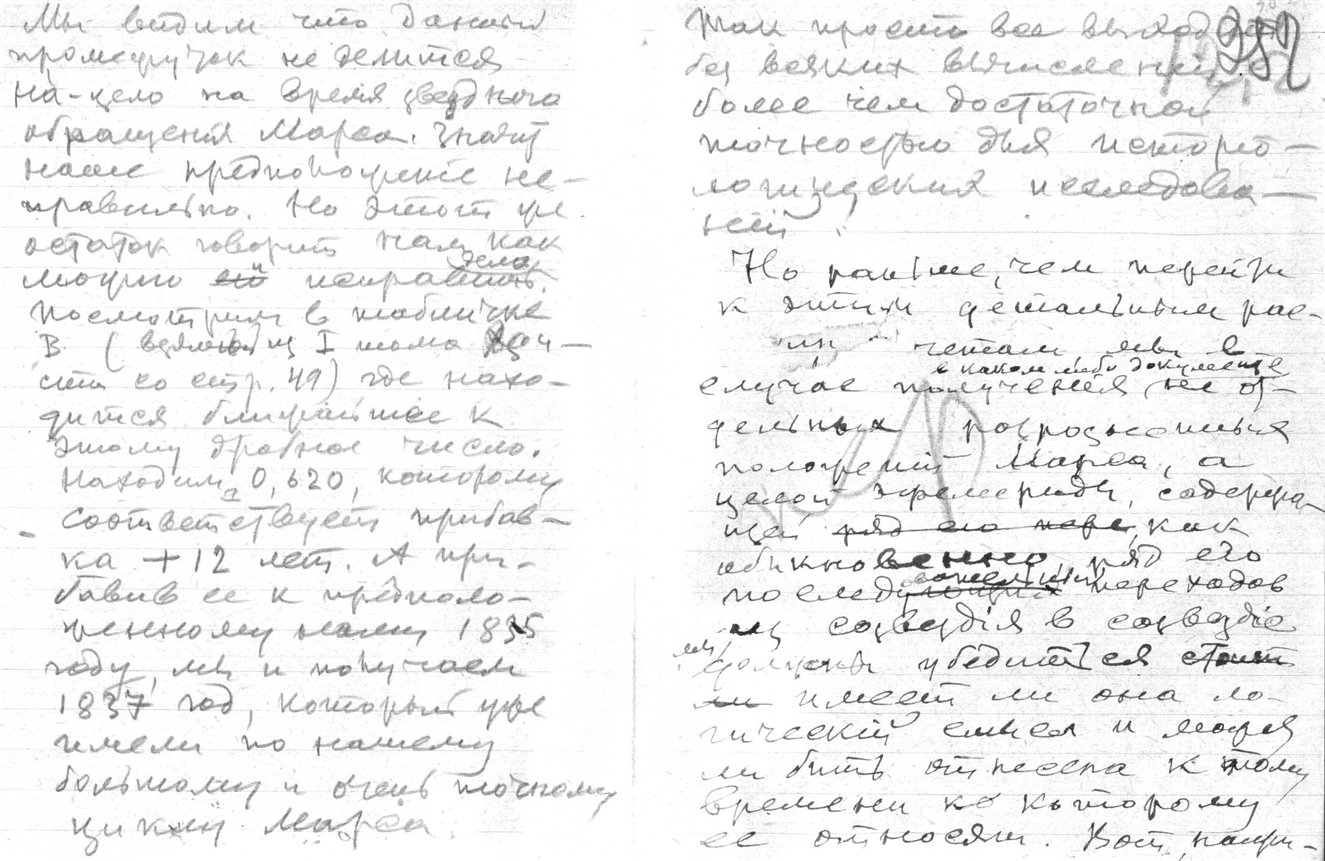 Мы видим что данный
промежуток не делится
на-цело на время звездного
обращения Марса. Значит
наше предположение не-
правильно. Но этот же
остаток говорит нам как
можно исправить дело.
Посмотрим в табличке
В (взятой из I тома
со стр. 49) где нахо-
дится ближайшее к
этому дробное число.
Находим 0,620, которому
соответствует прибав-
ка +12 лет. А при-
бавив ее к предполо-
женному нами 1825
году, мы и получаем
1837 год, который уже
имели по нашему
большому и очень точному
циклу Марса.
952
Так просто все выходит
без всяких вычислений
более чем достаточной
точностью для исторо-
логических исследова-
ний!
Но раньше, чем перейти
к этим детальным рас-
четам мы в
в каком либо документе
случае получения не от-
дельных разрозненных
положений Марса, а
целой эфемериды, содержа
щей ряд его пере, как
обыкновенно ряд его
последовательных переходов
из созвездия в созвездие
мы должны убедиться
имеет ли она ло-
гический смысл и может
ли быть отнесена к тому
времени ко которому
ее относят. Вот, напри-